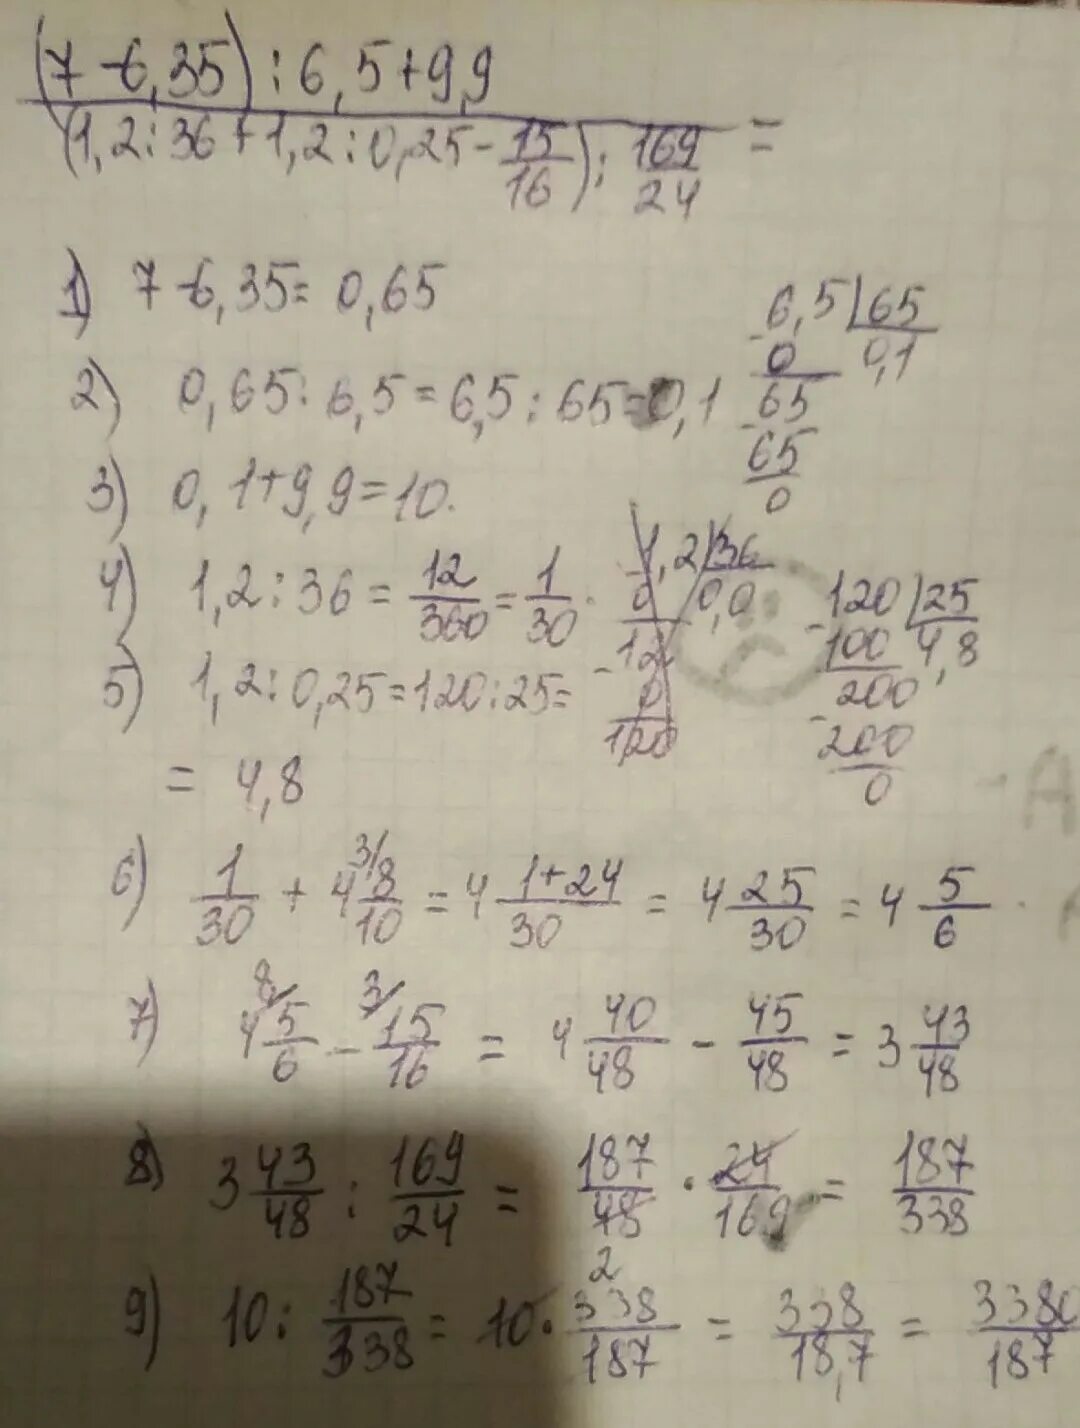 (7-6,35):6,5+9,9
(1,2:36+1,2:0,25-15/16):169/24 =
1) 7-6,35=0,65
2) 0,65:6,5=6,5:65=0,1
6,5|65
0 0,1
65
65
0
3) 0,1+9,9=10.
4) 1,2:36=12/360=1/30.
1,2|36
0 0,0
12
0
120
120|25
100 4,8
200
200
0
5) 1,2:0,25=120:25=
= 4,8
6) 1/30 + 4 8/10 3/ = 4 1+24/30 = 4 25/30 = 4 5/6
7) 4 5/6 8/ - 15/16 3/ = 4 40/48 - 45/48 = 3 43/48
8) 3 43/48 : 169/24 = 187/48 · 24/169 = 187/338
2
9) 10: 187/338 = 10· 338/187 = 338/18,7 = 3380/187